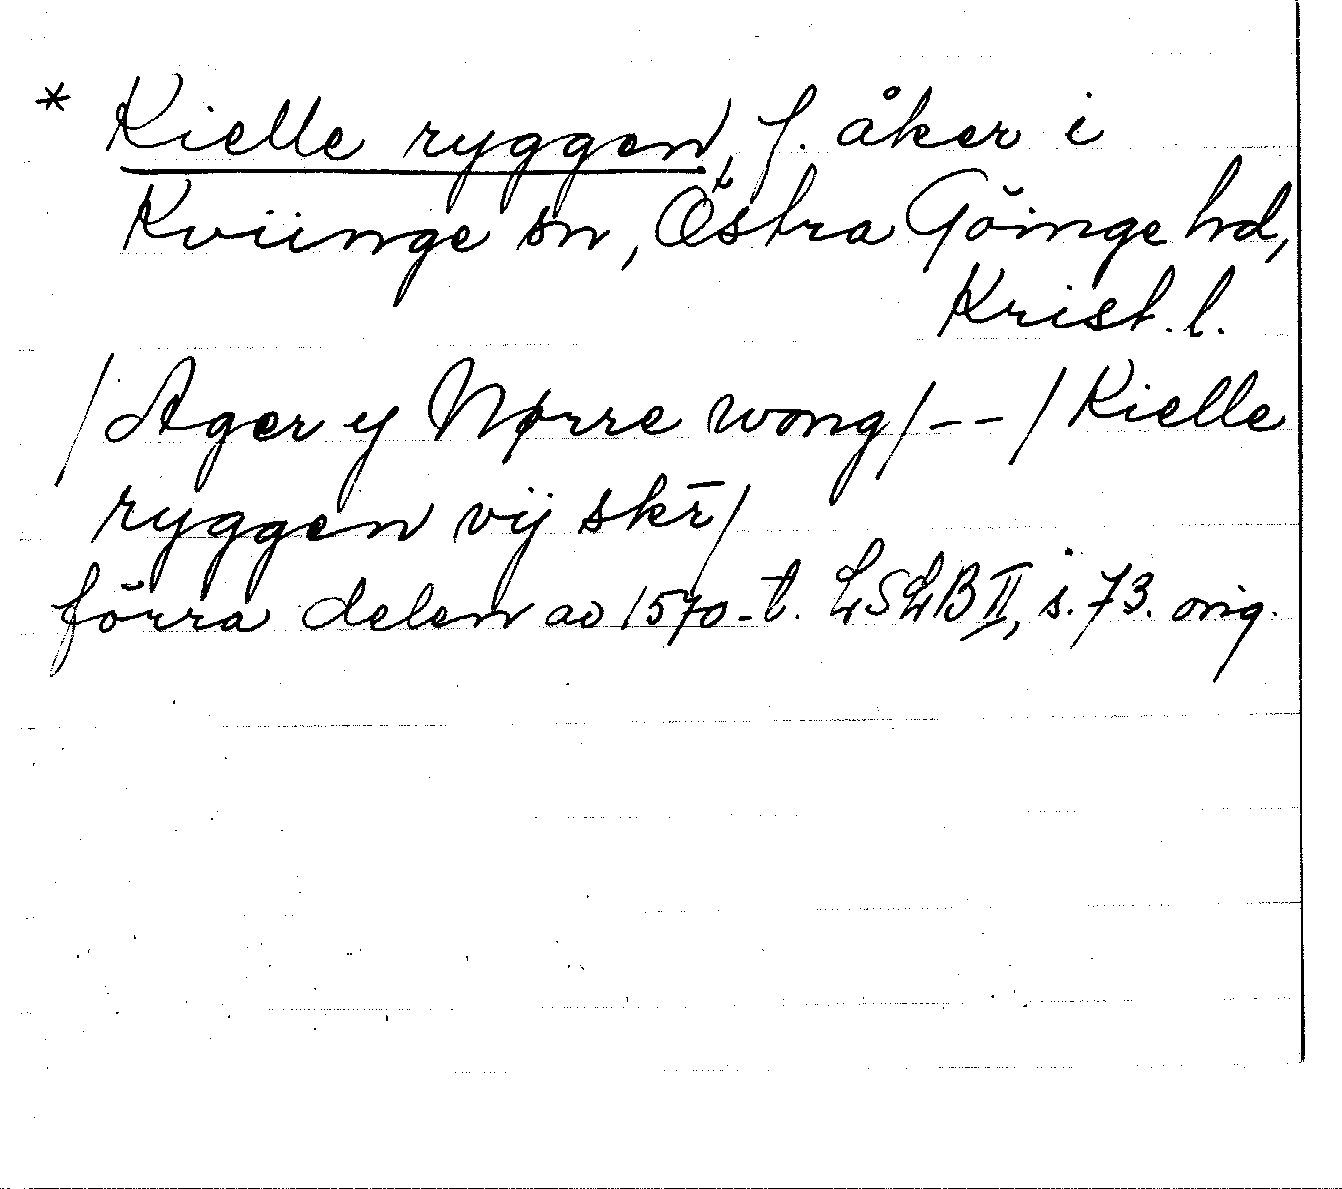 * Kielle ryggen, f. åker i
Kviinge sn, Östra Göinge hd,
Krist. l.
/Ager y Nørre wong/ -- /Kielle
ryggen vij skr̄/
förra delen av 1570-t. LSLB II, s. 73. orig.